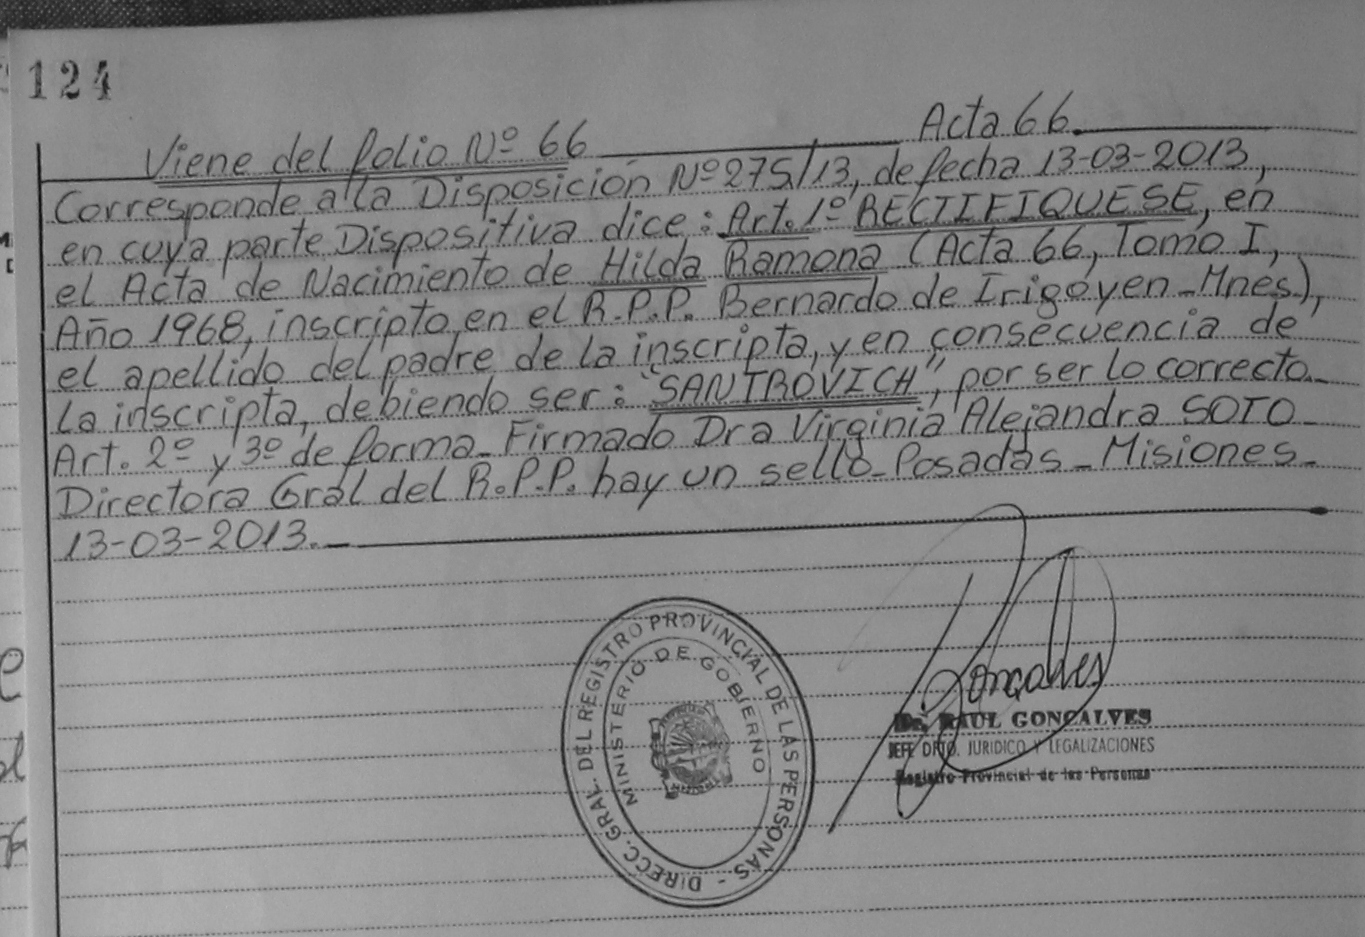 124
Viene del folio Nº 66 Acta 66.
Corresponde a la Disposición Nº 275/13, de fecha 13-03-2013,
en cuya parte Dispositiva dice: Art. 1º RECTIFIQUESE, en
el Acta de Nacimiento de Hilda Ramona (Acta 66, Tomo I,
Año 1968, inscripto en el R.P.P. Bernardo de Irigoyen-Mnes),
el apellido del padre de la inscripta, y en consecuencia de
la inscripta, debiendo ser: "SANTROVICH", por ser lo correcto.
Art. 2º y 3º de forma. Firmado Dra Virginia Alejandra SOTO
Directora Gral del R.P.P. hay un sello-Posadas-Misiones-
13-03-2013.
DIRECC. GRAL. DEL REGISTRO PROVINCIAL DE LAS PERSONAS -
MINISTERIO DE GOBIERNO
Goncalves
Dr. RAUL GONCALVES
JEFE DPTO. JURIDICO Y LEGALIZACIONES
Registro Provincial de las Personas